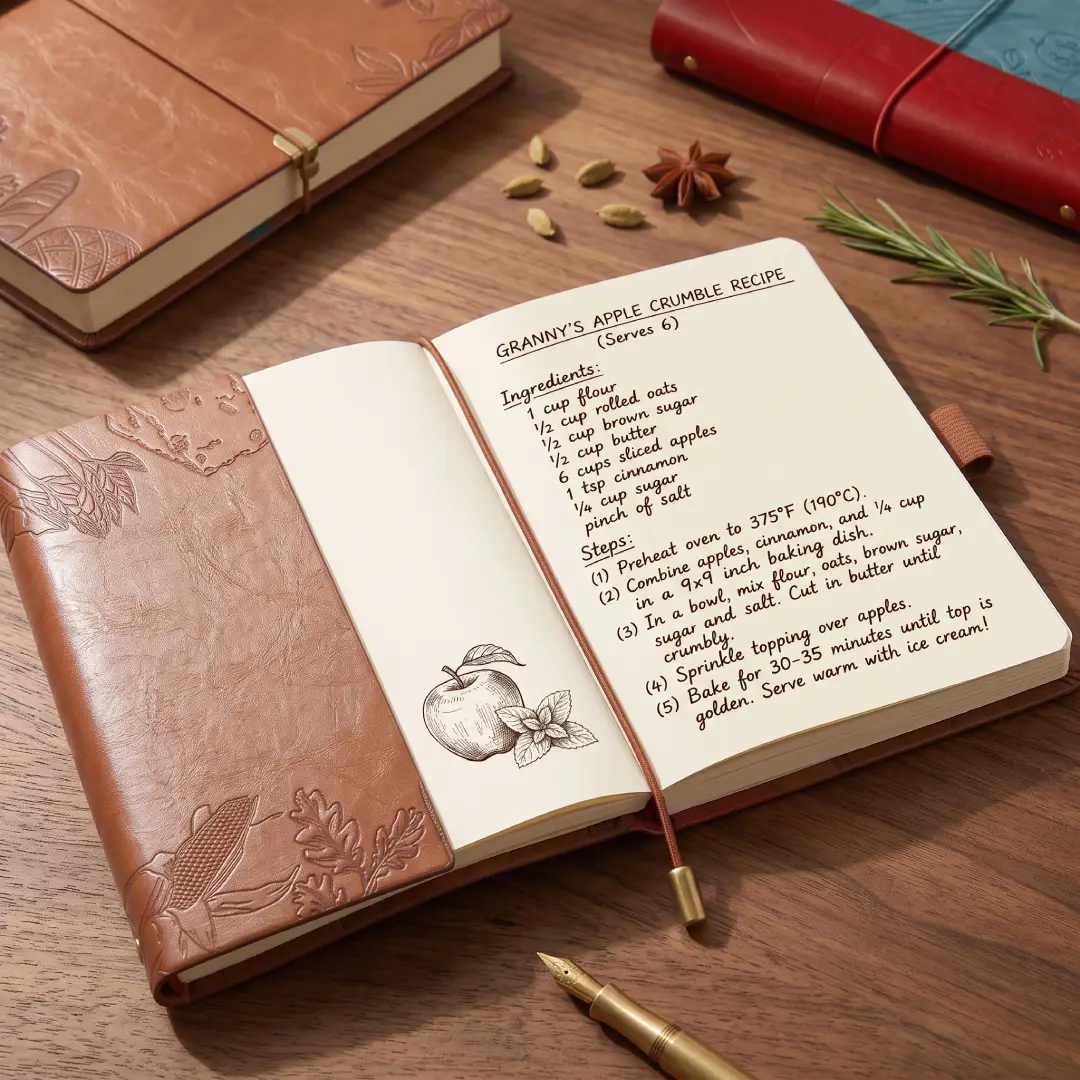 GRANNY'S APPLE CRUMBLE RECIPE
(Serves 6)
Ingredients:
1 cup flour
½ cup rolled oats
½ cup brown sugar
½ cup butter
6 cups sliced apples
1 tsp cinnamon
¼ cup sugar
pinch of salt
Steps:
(1) Preheat oven to 375°F (190°C).
(2) Combine apples, cinnamon, and ¼ cup
in a 9x9 inch baking dish.
(3) In a bowl, mix flour, oats, brown sugar,
sugar and salt. Cut in butter until
crumbly.
(4) Sprinkle topping over apples.
(5) Bake for 30-35 minutes until top is
golden. Serve warm with ice cream!